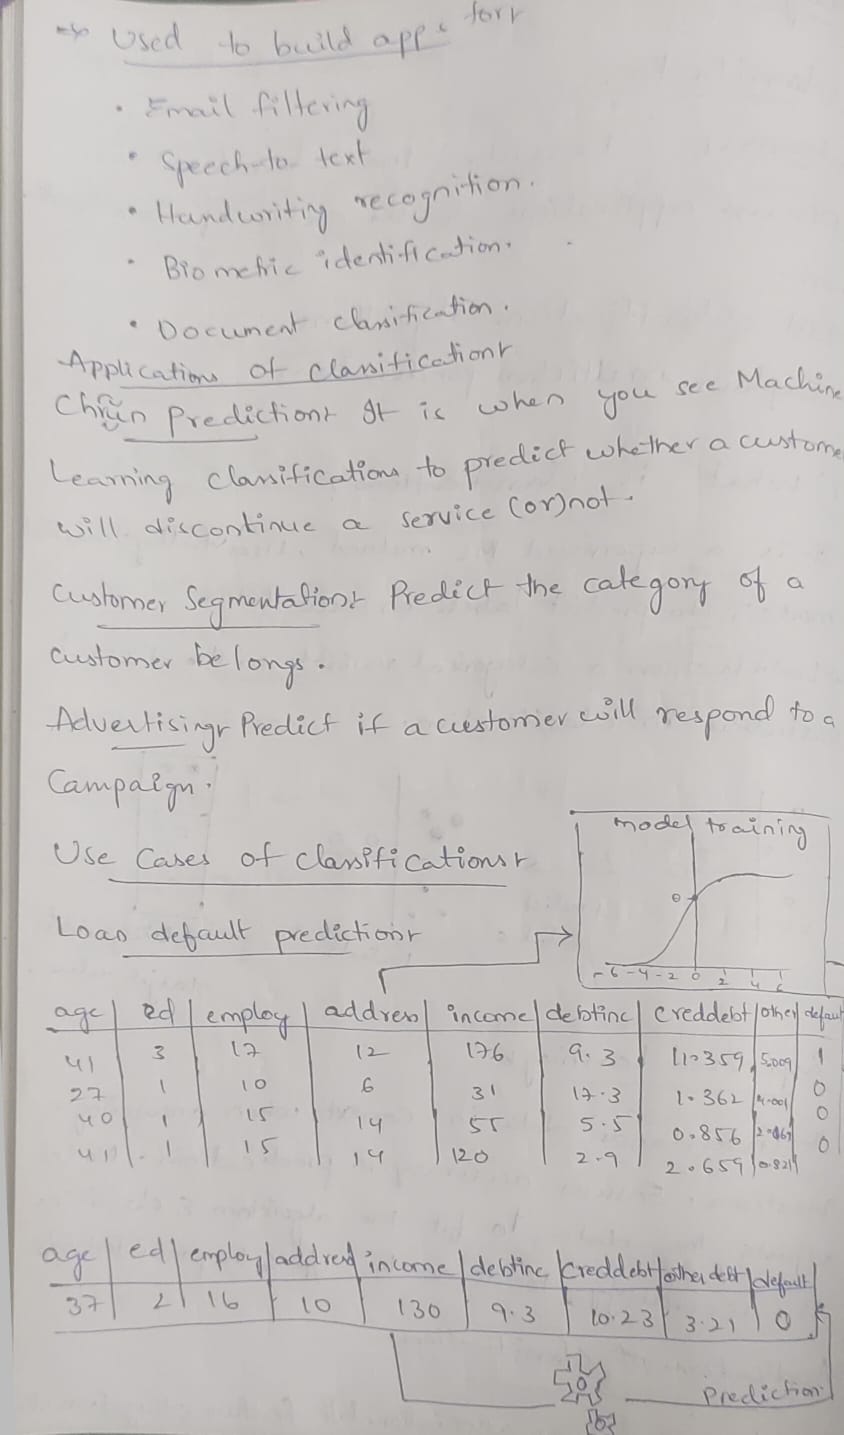 Used to build apps for:
• Email filtering
• Speech-to-text
• Handwritiy recognition.
• Biometric identification.
• Document classification.
Applications of classification:
Churn Prediction: It is when you see Machine
Learning classifications to predict whether a custome
will discontinue a service (or) not.
Customer Segmentation: Predict the category of a
customer belongs.
Advertising: Predict if a customer will respond to a
Campaign.
model training
Use Cases of classifications:
0
Loan default prediction:
-6 -4 -2 0 2 4 6
age ed employ address income debtinc creddebt other defau
41 3 17 12 176 9.3 11.359 5.009 1
27 1 10 6 31 17.3 1.362 4.001 0
40 1 15 14 55 5.5 0.856 0
41 1 15 14 120 2.9 2.659 0.821 0
age ed employ address income debtinc creddebt other debt default
37 2 16 10 130 9.3 10.23 3.21 0
Prediction